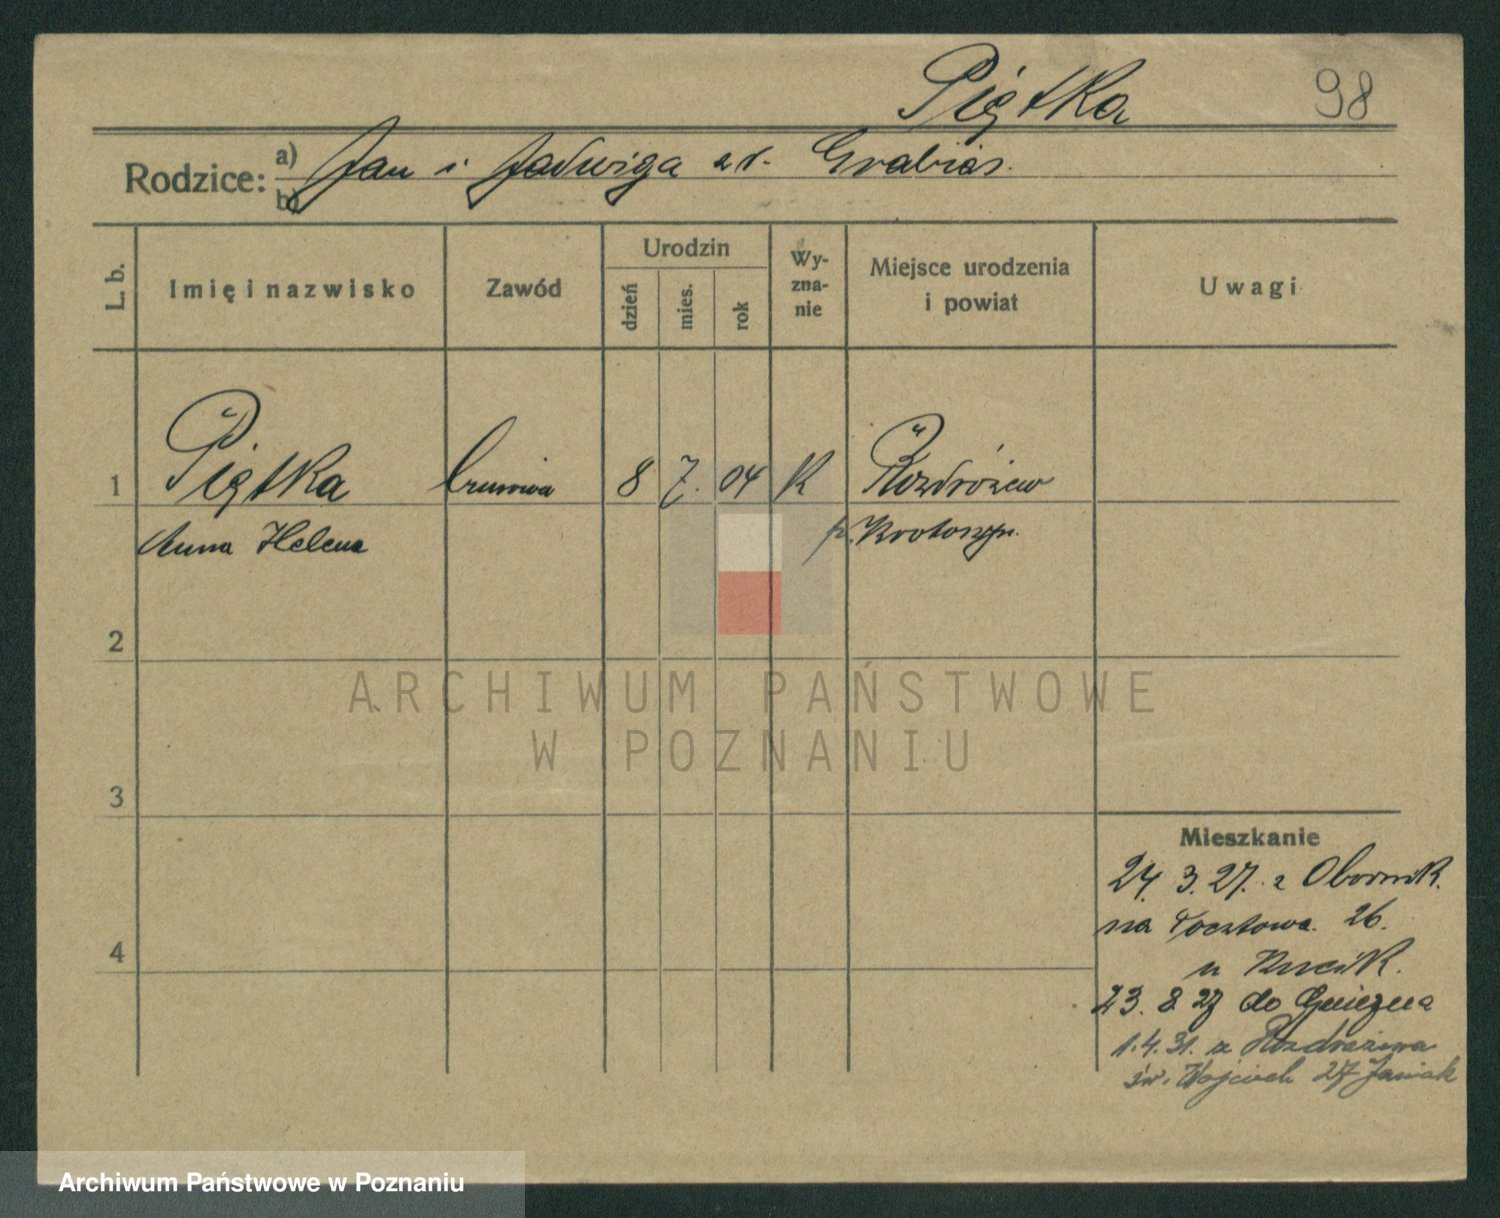 Piątka 98
Rodzice: a) Jan i Jadwiga zd. Grabias.
b)
L. b. Imię i nazwisko Zawód Urodzin dzień mies. rok Wyznanie Miejsce urodzenia i powiat Uwagi
1 Piątka 8 7. 04 K Rozdrożew
Anna Helena p. Krotoszyn.
2
ARCHIWUM PAŃSTWOWE
W POZNANIU
3
Mieszkanie
24. 3. 27. z Obornik.
na Pocztowa. 26.
4
u
23. 8 27 do Gniezna
1.4.31. z Rozdrażewa
św. Wojciech 27 Janiak
Archiwum Państwowe w Poznaniu